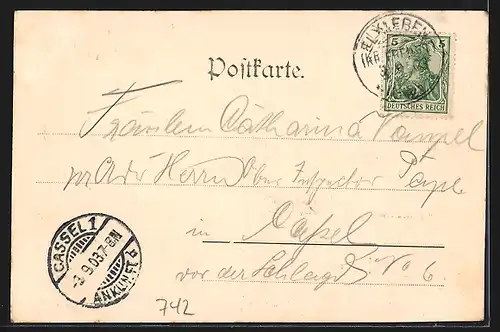 ELXLEBEN
5 5
DEUTSCHES REICH
Postkarte.
Fräulein Catharina Vampel
pr Adr Herrn Ober Inspector Pape
in Cassel
vor der Schlagd No 6.
CASSEL 1
9.03.7-8N
ANKUNFT
742